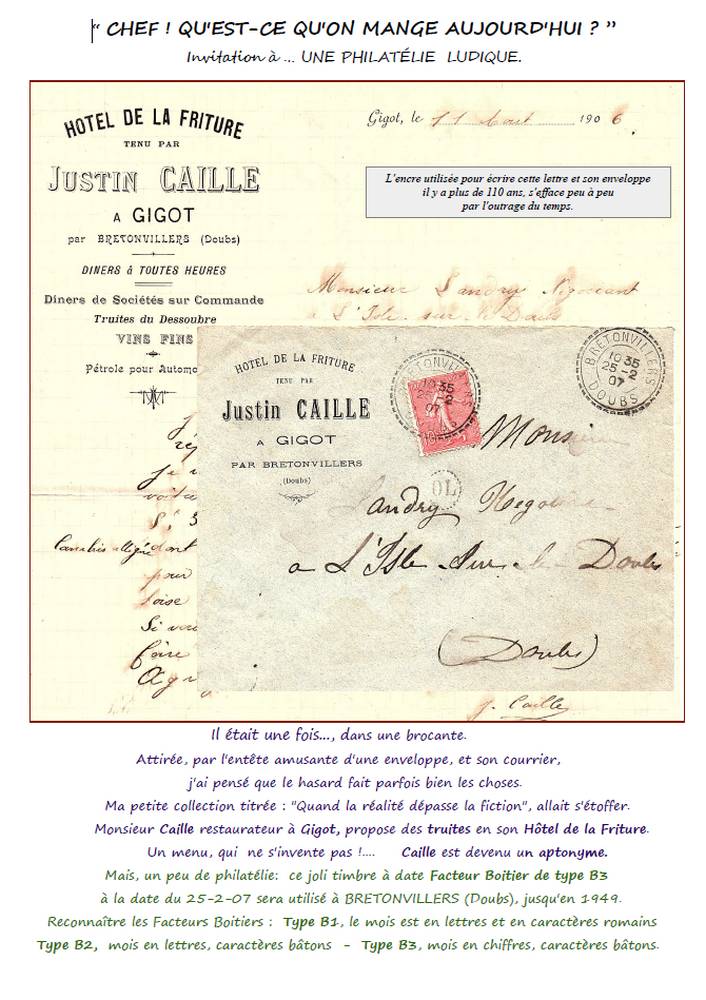 “ CHEF ! QU'EST-CE QU'ON MANGE AUJOURD'HUI ? ”
Invitation à ... UNE PHILATÉLIE LUDIQUE.
HOTEL DE LA FRITURE
TENU PAR
JUSTIN CAILLE
A GIGOT
par BRETONVILLERS (Doubs)
DINERS à TOUTES HEURES
Diners de Sociétés sur Commande
Truites du Dessoubre
VINS FINS
Pétrole pour Automo
Gigot, le 11 Aout 1906.
L'encre utilisée pour écrire cette lettre et son enveloppe
il y a plus de 110 ans, s'efface peu à peu
par l'outrage du temps.
Monsieur Landry Négociant
à L'Isle sur le Doubs
dont
pour
Si
faire
J. Caille
HOTEL DE LA FRITURE
TENU PAR
Justin CAILLE
A GIGOT
PAR BRETONVILLERS
(Doubs)
BRETONVILLERS
10 35
25 -2
07
BRETONVILLERS
10 35
25 -2
07
DOUBS
OL
Monsieur
Landry
a L'Isle Sur le Doubs
(Doubs)
Il était une fois..., dans une brocante.
Attirée, par l'entête amusante d'une enveloppe, et son courrier,
j'ai pensé que le hasard fait parfois bien les choses.
Ma petite collection titrée : "Quand la réalité dépasse la fiction", allait s'étoffer.
Monsieur Caille restaurateur à Gigot, propose des truites en son Hôtel de la Friture.
Un menu, qui ne s'invente pas !.... Caille est devenu un aptonyme.
Mais, un peu de philatélie: ce joli timbre à date Facteur Boitier de type B3
à la date du 25-2-07 sera utilisé à BRETONVILLERS (Doubs), jusqu'en 1949.
Reconnaître les Facteurs Boitiers : Type B1, le mois est en lettres et en caractères romains
Type B2, mois en lettres, caractères bâtons - Type B3, mois en chiffres, caractères bâtons.